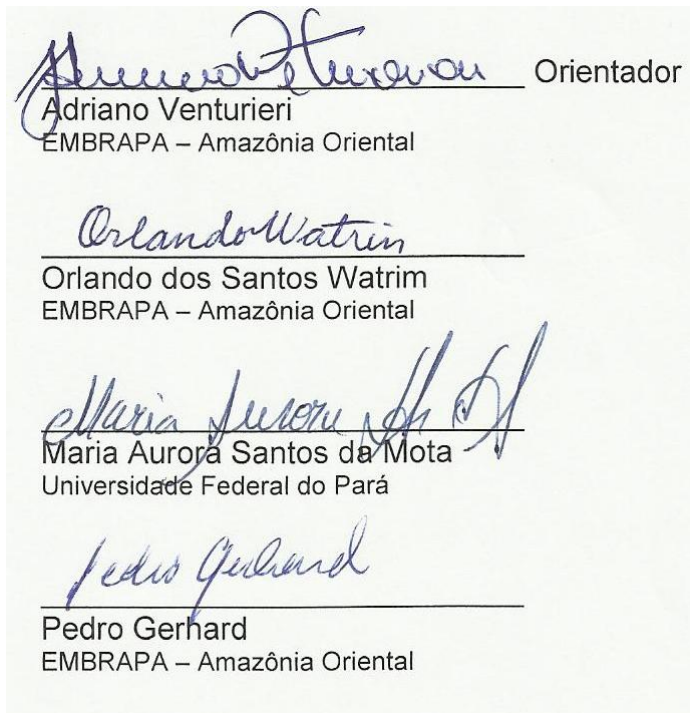 Orientador
Adriano Venturieri
EMBRAPA – Amazônia Oriental
Orlando Watrin
Orlando dos Santos Watrim
EMBRAPA – Amazônia Oriental
Maria Aurora
Maria Aurora Santos da Mota
Universidade Federal do Pará
Pedro Gerhard
Pedro Gerhard
EMBRAPA – Amazônia Oriental